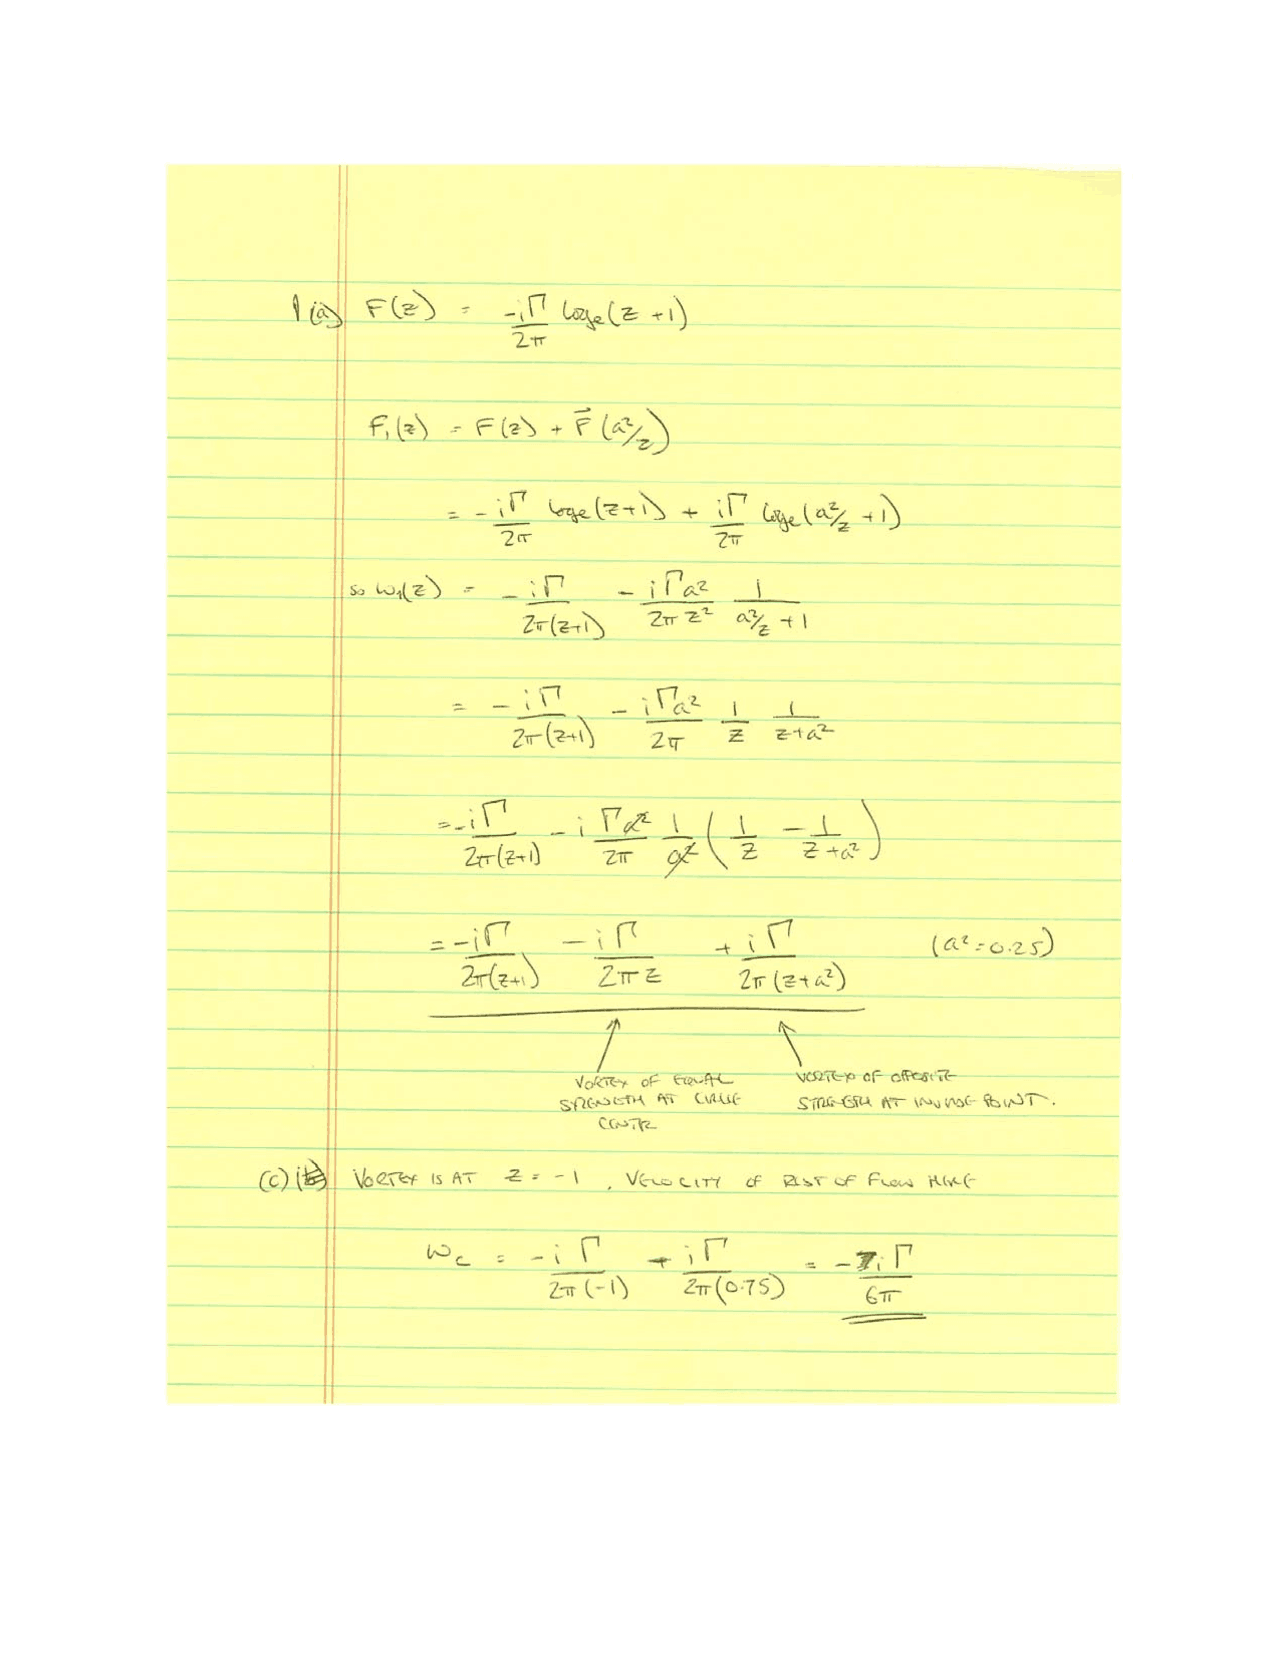 1(a) F(z) = -iΓ/2π loge(z+1)
F₁(z) = F(z) + F̄(a²/z)
= -iΓ/2π loge(z+1) + iΓ/2π loge(a²/z +1)
so W₁(z) = -iΓ/2π(z+1) - iΓa²/2πz² 1/(a²/z +1)
= -iΓ/2π(z+1) - iΓa²/2π 1/z 1/(z+a²)
= -iΓ/2π(z+1) - iΓa²/2π 1/a² (1/z - 1/(z+a²))
= -iΓ/2π(z+1) - iΓ/2πz + iΓ/2π(z+a²) (a²=0.25)
VORTEX OF EQUAL STRENGTH AT CIRCLE CENTRE
VORTEX OF OPPOSITE STRENGTH AT INVERSE POINT.
(c) VORTEX IS AT z = -1, VELOCITY OF REST OF FLOW HERE
Wc = -iΓ/2π(-1) + iΓ/2π(0.75) = -7iΓ/6π